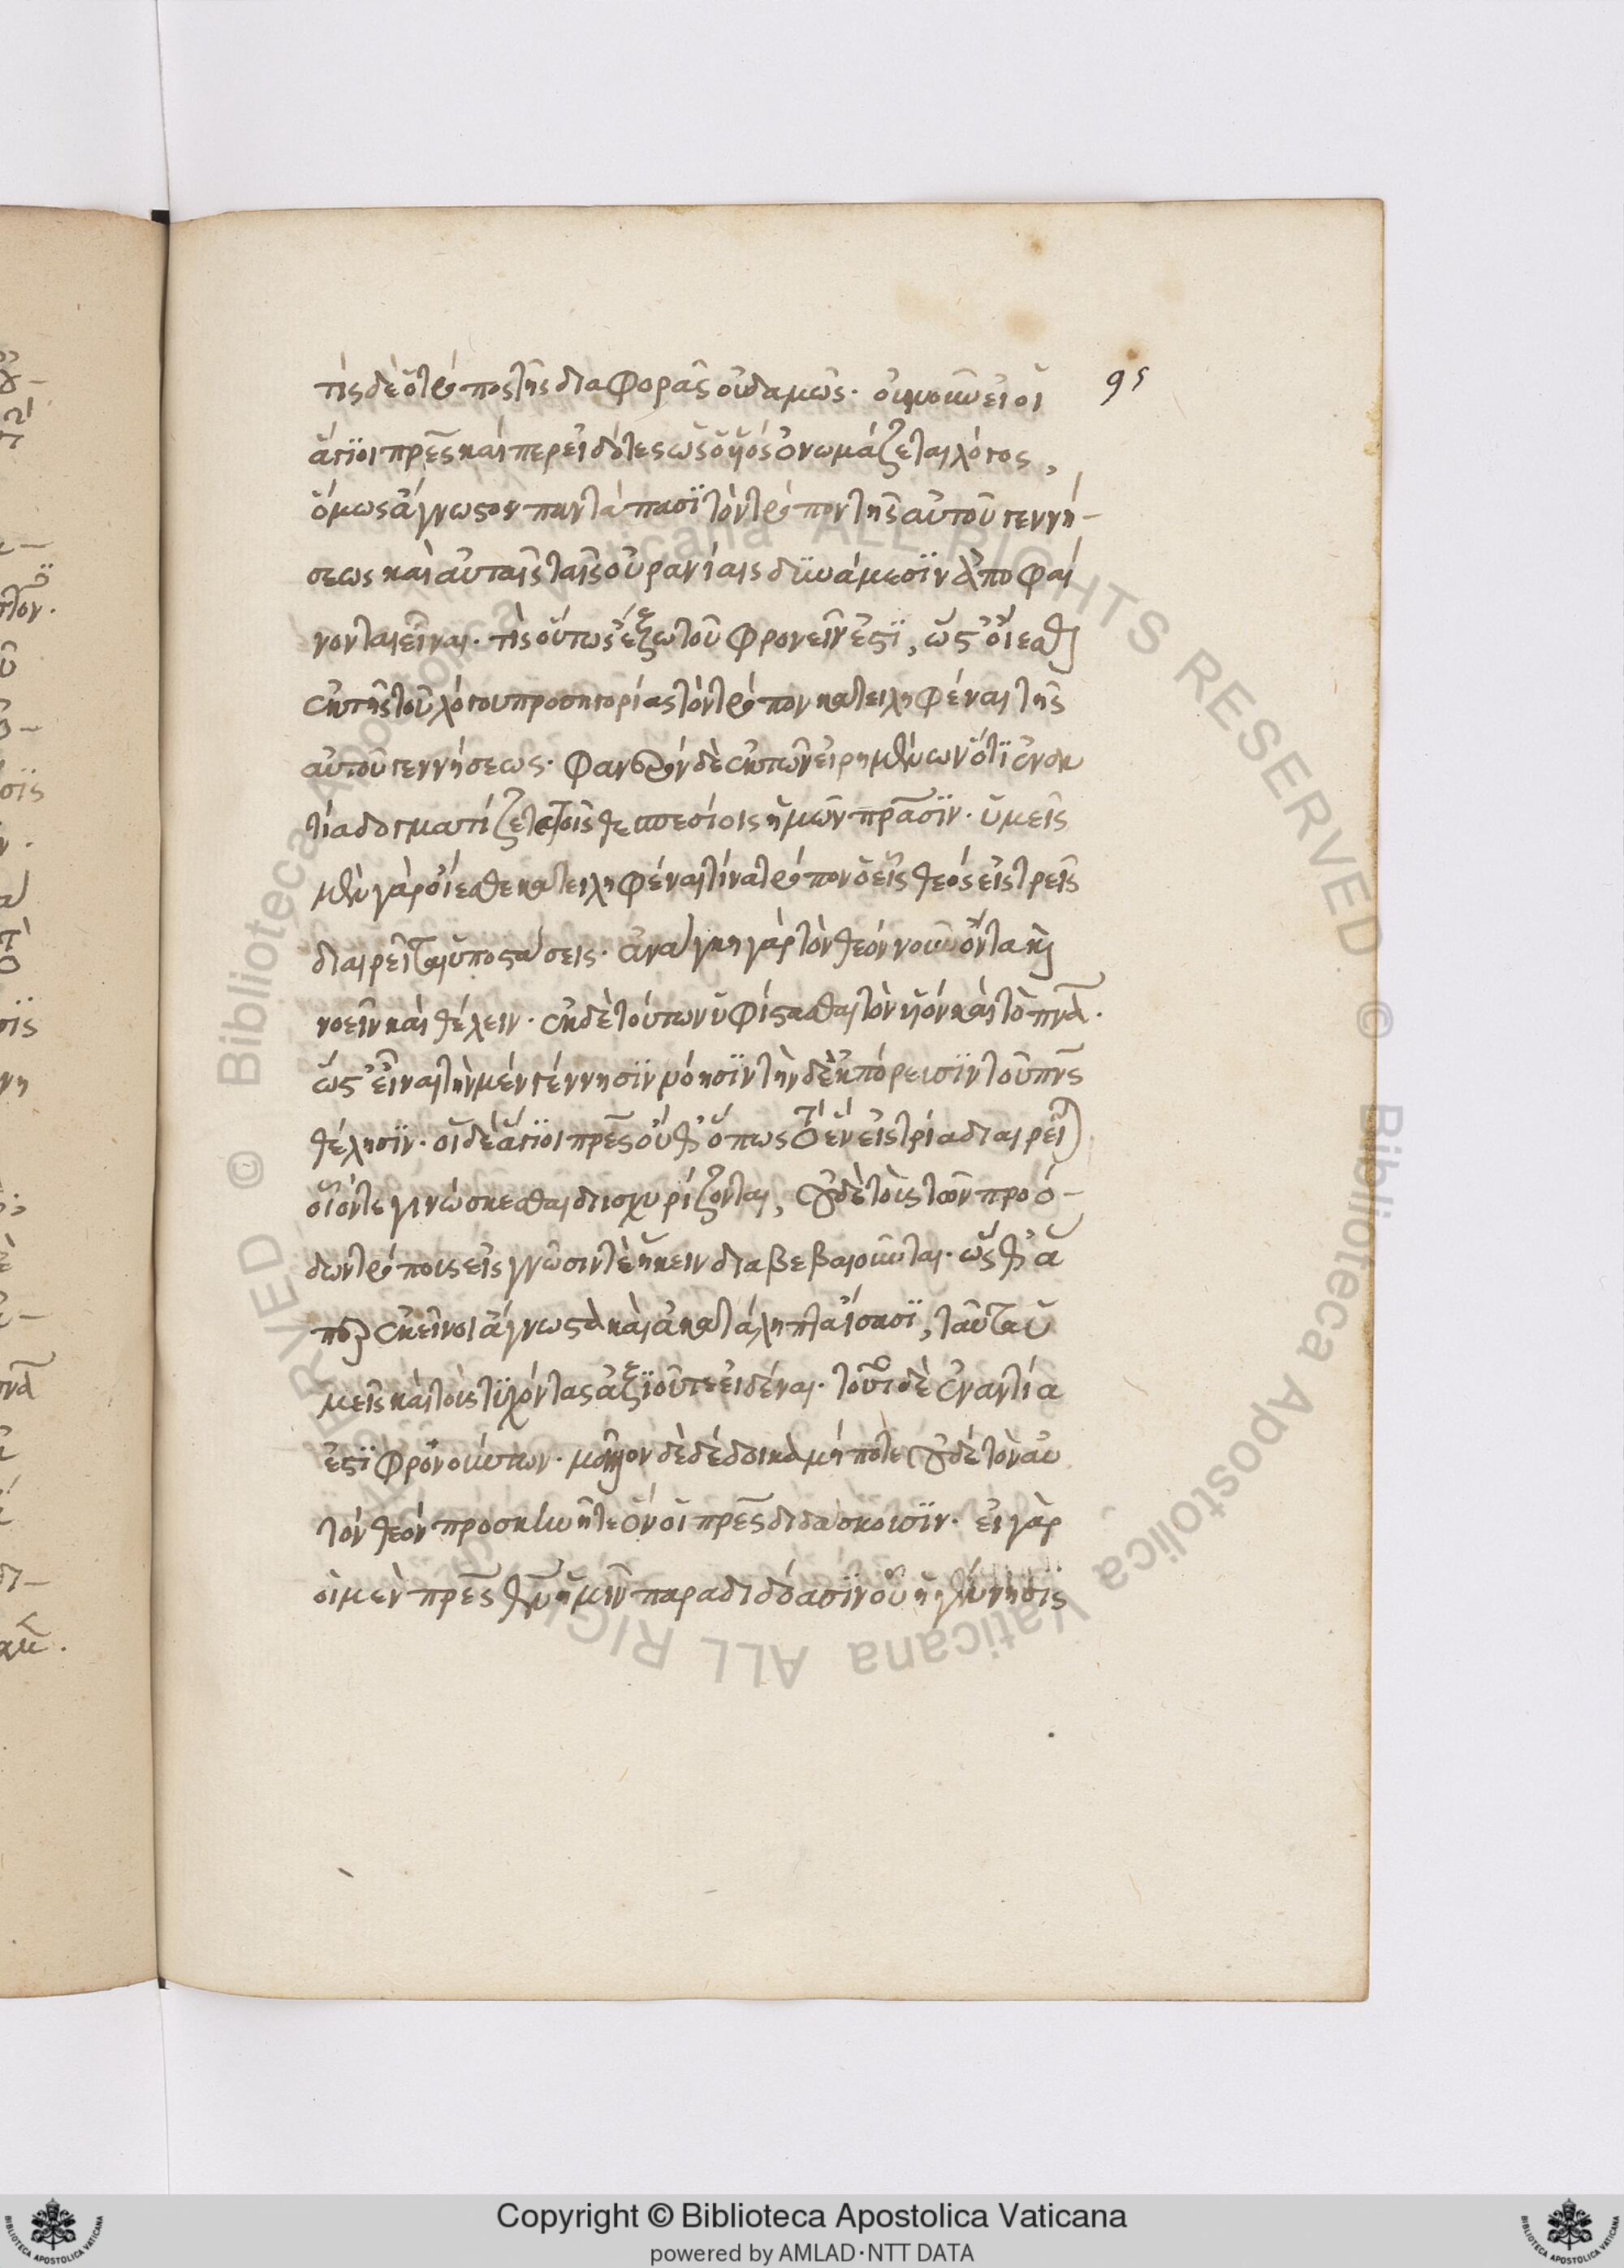 τὶς δὲ ὁ τρόπος τῆς διαφορᾶς οὐδαμῶς. οὐκοῦν εἰ οἱ
95
ἅγϊοι πρ̅ε̅ς καίπερ εἰδότες ὡς ὁ υἱὸς ὀνωμάζεται λόγος,
ὅμως ἄγνωστον παντάπασϊ τὸν τρόπον τῆς αὐτοῦ γεννή-
σεως καὶ αὐταῖς ταῖς οὐρανίαις δϋνάμεσϊν ἀποφαί
νονται εἶναι. τὶς οὕτως ἔξω τοῦ φρονεῖν ἐστϊ, ὥστ' οἴεσθαι
ἐκ τῆς τοῦ λόγου προσηγορίας τὸν τρόπον κατειληφέναι τῆς
αὐτοῦ γεννήσεως. φανερὸν δὲ ἐκ τῶν εἰρημένων ὅτϊ ἐναν
τία δογματίζεται τοῖς θεσπεσίοις ἡμῶν πρ̅ᾶσϊν. ὑμεῖς
μὲν γὰρ οἴεσθε κατειληφέναι τίνα τρόπον ὁ εἷς θεὸς εἰς τρεῖς
διαιρεῖται ὑποστάσεις. ἀνάγκη γὰρ τὸν θεὸν νοῦν ὄντα καὶ
νοεῖν καὶ θέλειν. ἐκ δὲ τούτων ὑφίστασθαι τὸν υἱὸν καὶ τὸ πν̅α̅.
ὥστ' εἶναι τὴν μὲν γέννησϊν νόησϊν τὴν δὲ ἐκπόρευσϊν τοῦ πν̅ς̅
θέλησϊν. οἱ δὲ ἅγϊοι πρ̅ε̅ς οὔθ' ὅπως τὸ ἓν εἰς τρία διαιρεῖται
οἷόν τε γινώσκεσθαι διϊσχυρίζονται, οὐδὲ τοὺς τῶν προό-
δων τρόπους εἰς γνῶσιν τὲ ἥκειν διαβεβαιοῦνται. ὥσθ' ἅ
περ ἐκεῖνοι ἄγνωστα καὶ ἀκατάληπτα ἴσασϊ, ταῦτα ὑ
μεῖς καὶ τοὺς τϋχόντας ἀξϊοῦτε εἰδέναι. τοῦτο δὲ ἐναντία
ἐστϊ φρονούντων. μᾶλλον δὲ δέδοικα μή ποτε οὐδὲ τὸν αὐ
τὸν θεὸν προσκυνῆτε ὃν οἱ πρ̅ε̅ς διδάσκουσϊν. εἰ γὰρ
οἱ μὲν πρ̅ε̅ς θ̅ν̅ ἡμῖν παραδιδόασϊν οὗ ἡ γέννησϊς